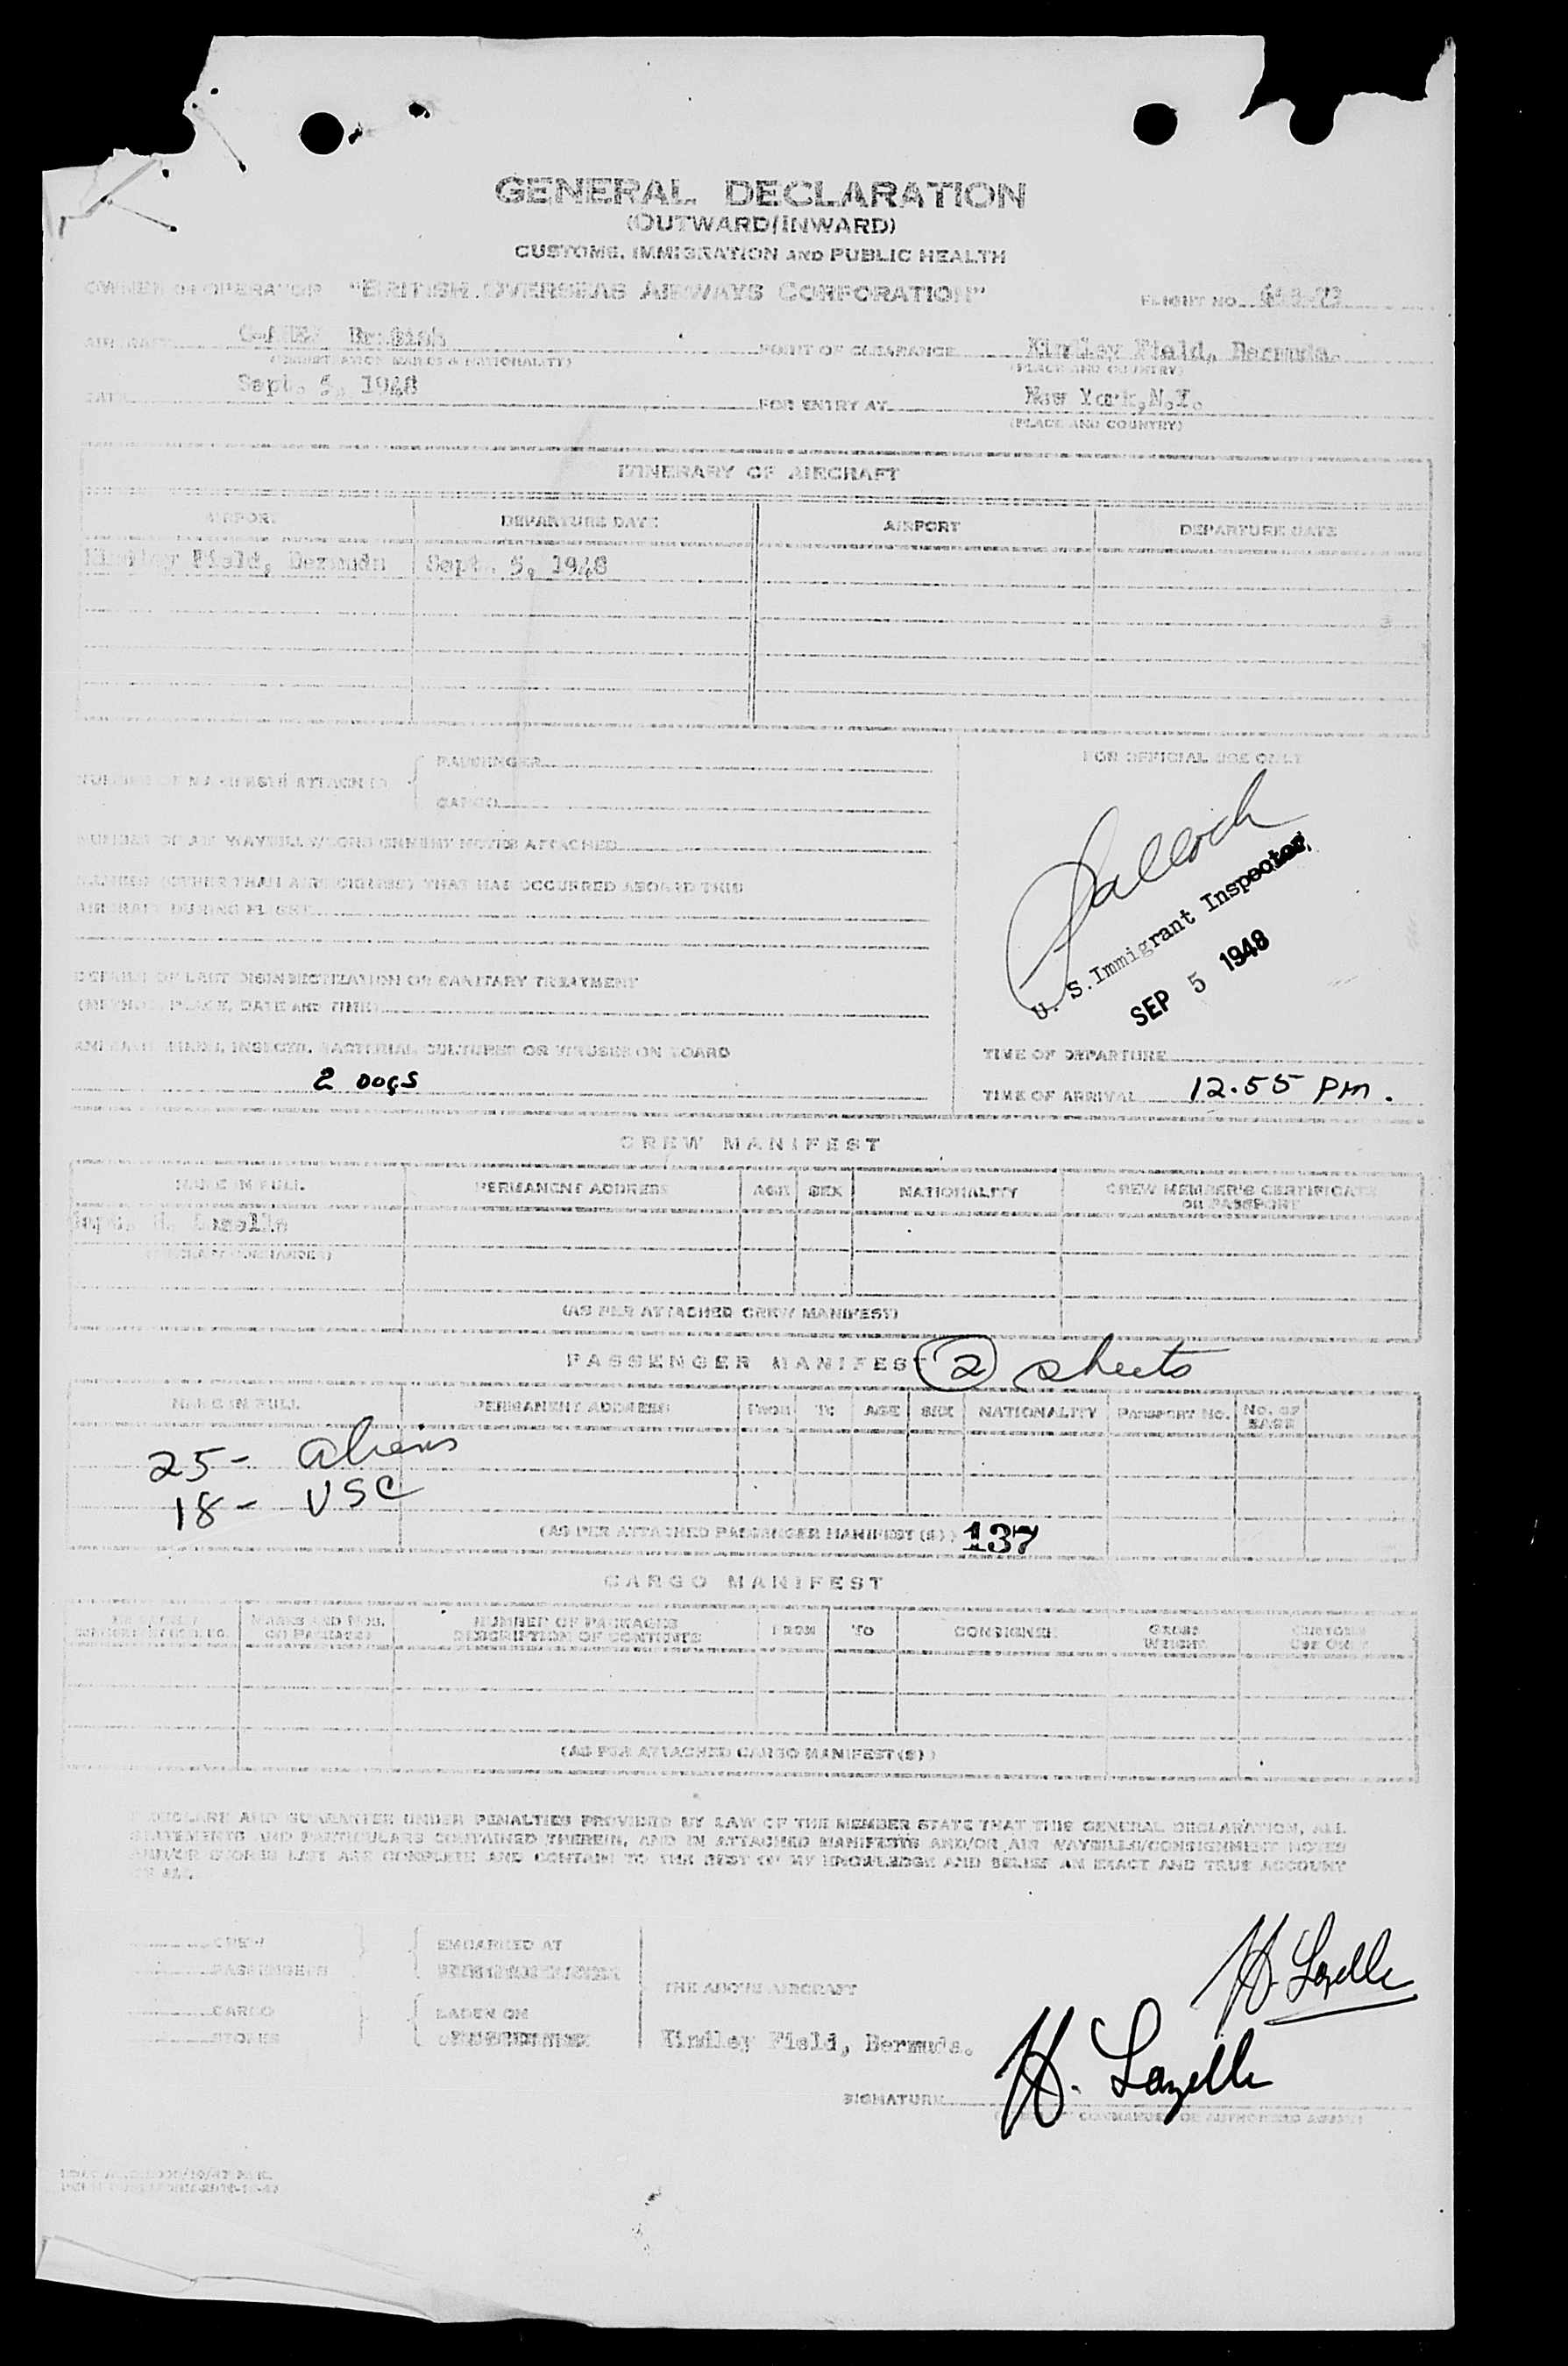 GENERAL DECLARATION
(OUTWARD/INWARD)
CUSTOMS, IMMIGRATION AND PUBLIC HEALTH
OWNER OR OPERATOR "BRITISH OVERSEAS AIRWAYS CORPORATION" FLIGHT NO.
AIRCRAFT British POINT OF CLEARANCE Kindley Field, Bermuda.
(REGISTRATION MARKS & NATIONALITY) (PLACE AND COUNTRY)
DATE Sept. 5, 1948 FOR ENTRY AT New York, N.Y.
(PLACE AND COUNTRY)
ITINERARY OF AIRCRAFT
AIRPORT DEPARTURE DATE AIRPORT DEPARTURE DATE
Kindley Field, Bermuda Sept. 5, 1948
FOR OFFICIAL USE ONLY
NUMBER OF MANIFESTS ATTACHED PASSENGER
CARGO
NUMBER OF AIR WAYBILLS/CONSIGNMENT NOTES ATTACHED
ILLNESS (OTHER THAN AIRSICKNESS) THAT HAS OCCURRED ABOARD THIS
AIRCRAFT DURING FLIGHT
U. S. Immigrant Inspector
SEP 5 1948
DETAILS OF LAST DISINSECTIZATION OR SANITARY TREATMENT
(METHOD, PLACE, DATE AND TIME)
ANIMALS, BIRDS, INSECTS, BACTERIAL CULTURES OR VIRUSES ON BOARD
2 DOGS
TIME OF DEPARTURE
TIME OF ARRIVAL 12.55 PM.
CREW MANIFEST
NAME IN FULL PERMANENT ADDRESS AGE SEX NATIONALITY CREW MEMBER'S CERTIFICATE
OR PASSPORT
Capt. H.
(AS PER ATTACHED CREW MANIFEST)
PASSENGER MANIFEST 2 sheets
NAME IN FULL PERMANENT ADDRESS FROM TO AGE SEX NATIONALITY PASSPORT NO. NO. OF
BAGS
25 - aliens
18 - USC
(AS PER ATTACHED PASSENGER MANIFEST (S) ) 137
CARGO MANIFEST
MARKS AND NOS. NUMBER OF PACKAGES FROM TO CONSIGNEE GROSS CUSTOMS
ON PACKAGES DESCRIPTION OF CONTENTS WEIGHT USE ONLY
(AS PER ATTACHED CARGO MANIFEST (S) )
I DECLARE AND GUARANTEE UNDER PENALTIES PROVIDED BY LAW OF THE MEMBER STATE THAT THIS GENERAL DECLARATION, ALL
STATEMENTS AND PARTICULARS CONTAINED THEREIN, AND IN ATTACHED MANIFESTS AND/OR AIR WAYBILLS/CONSIGNMENT NOTES
AND/OR STORES LIST ARE COMPLETE AND CONTAIN TO THE BEST OF MY KNOWLEDGE AND BELIEF AN EXACT AND TRUE ACCOUNT
OF ALL.
CREW EMBARKED AT
PASSENGERS
THE ABOVE AIRCRAFT
CARGO LADEN ON
STORES Kindley Field, Bermuda.
H. Lazelle
H. Lazelle
SIGNATURE
COMMANDER OR AUTHORIZED AGENT)